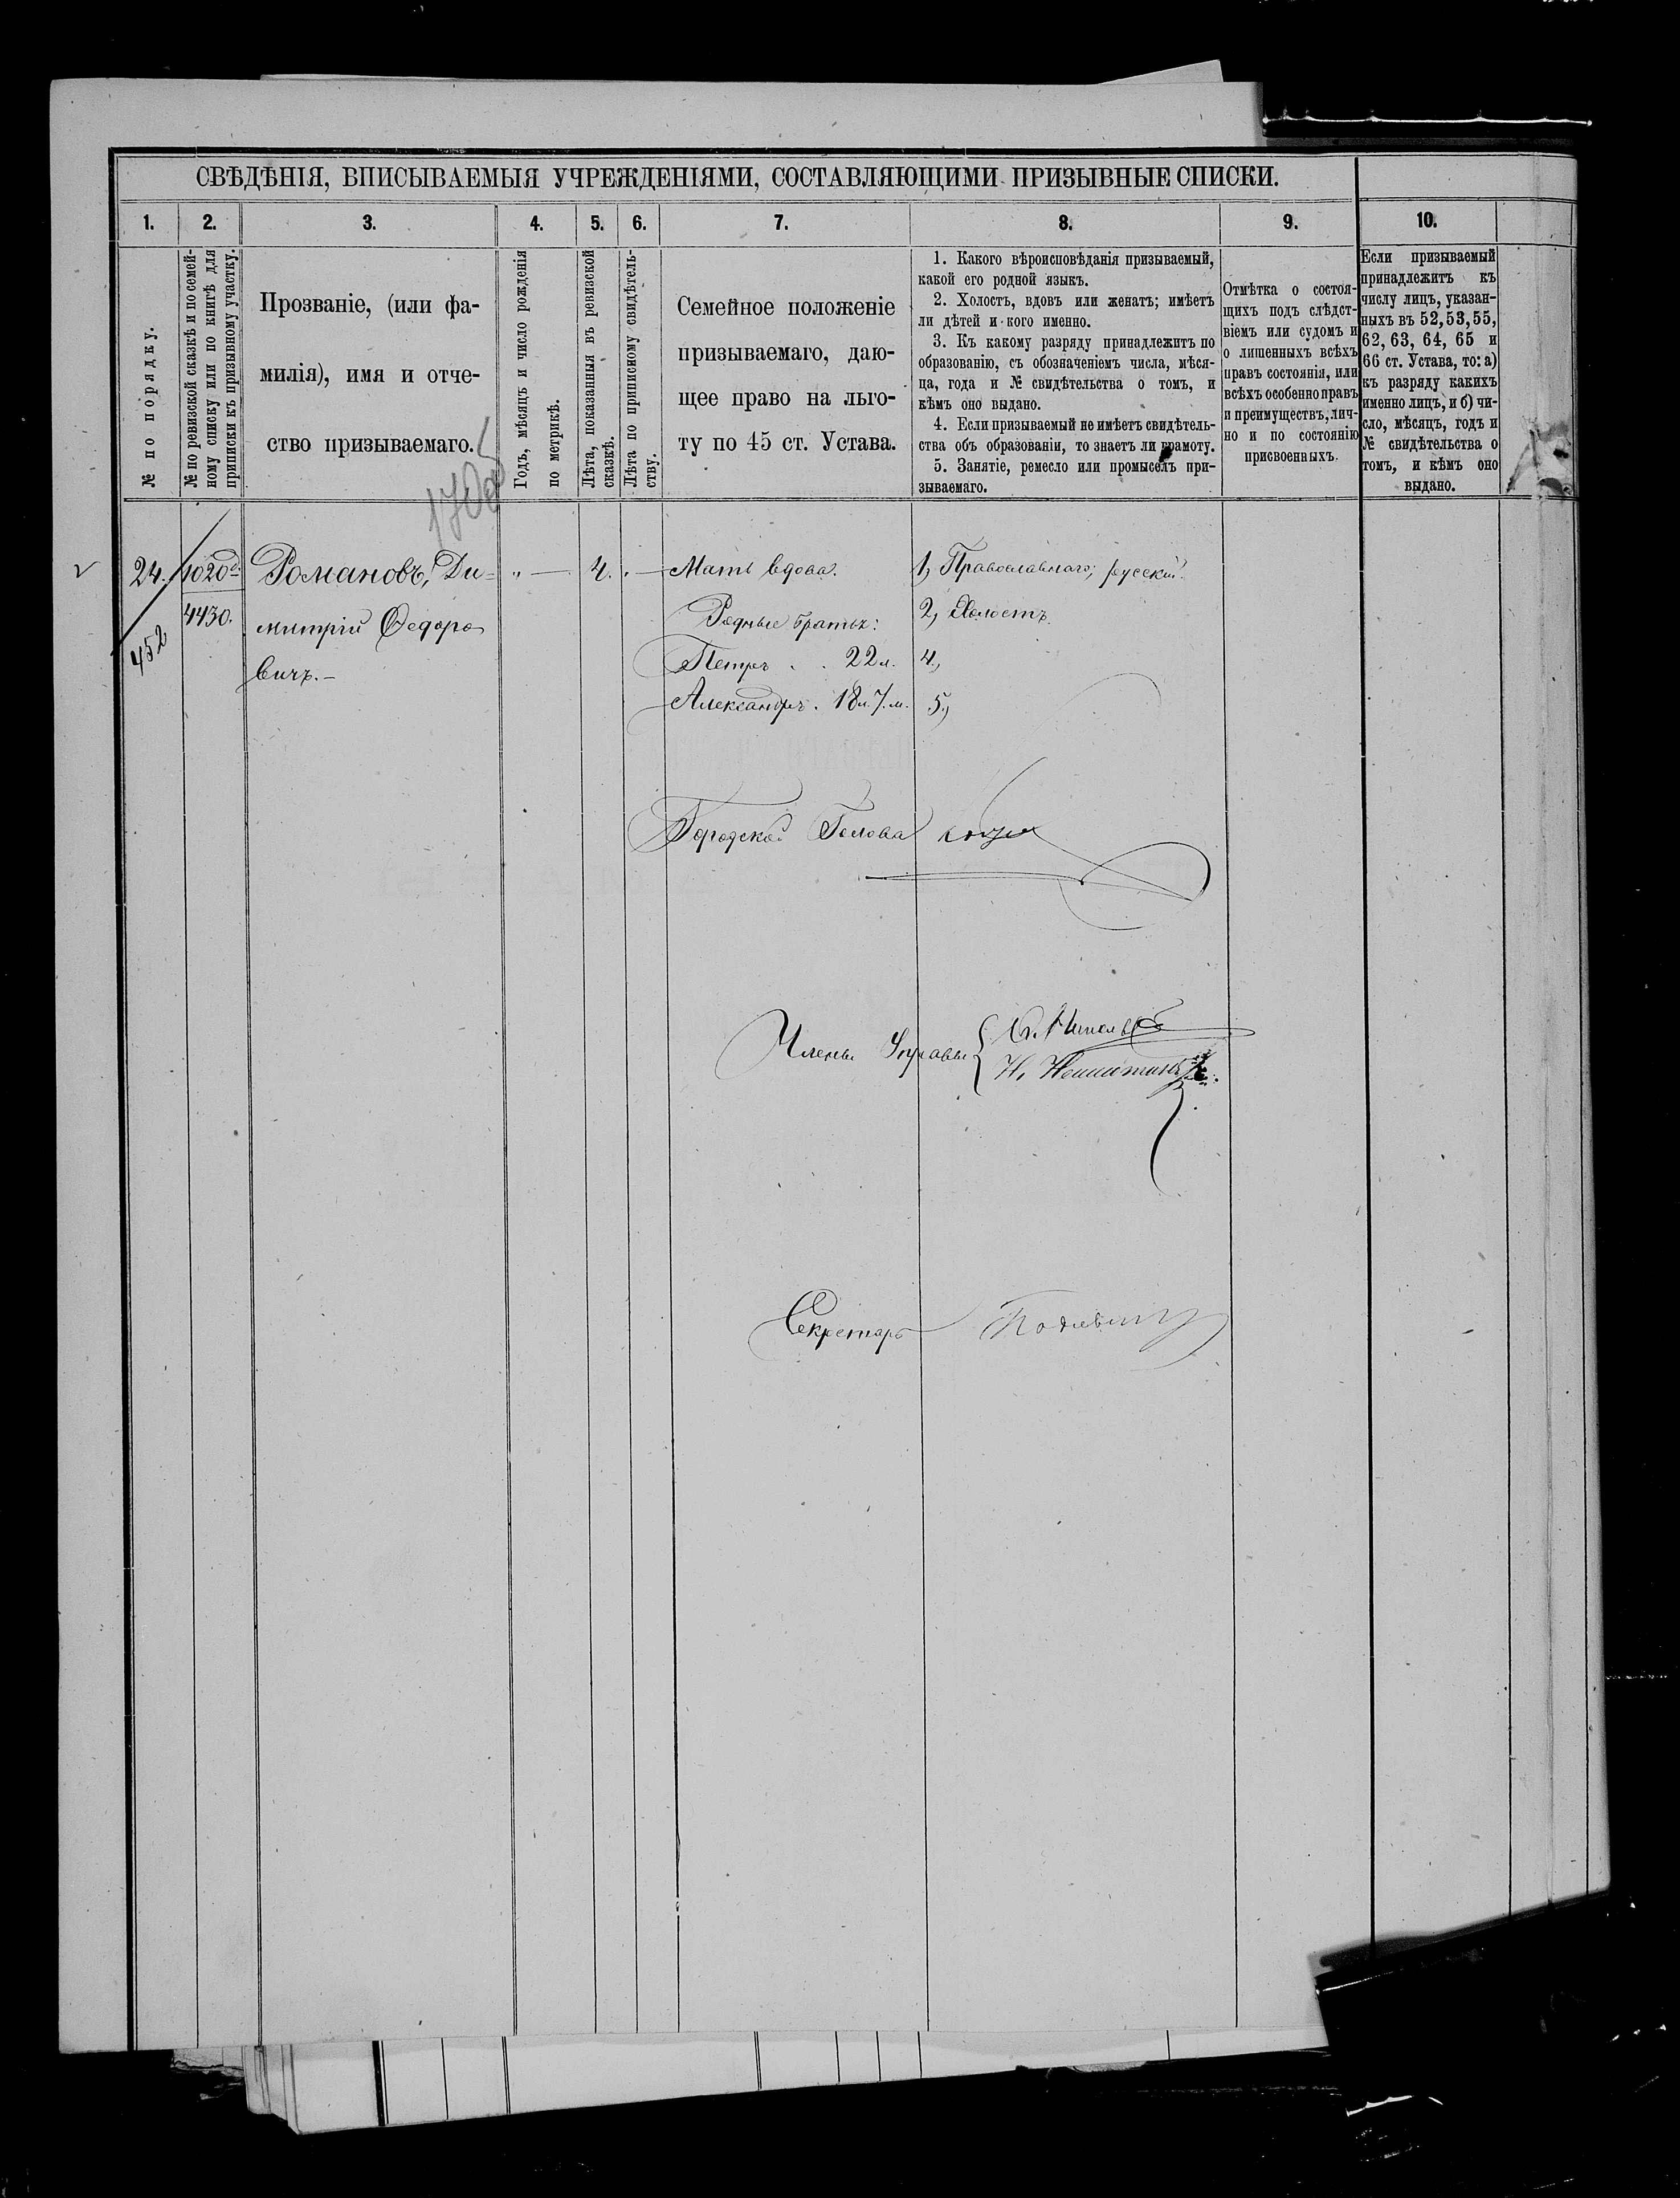 СВѢДѢНІЯ, ВПИСЫВАЕМЫЯ УЧРЕЖДЕНІЯМИ, СОСТАВЛЯЮЩИМИ ПРИЗЫВНЫЕ СПИСКИ.
1. 2. 3. 4. 5. 6. 7. 8. 9. 10.
№ по порядку.
№ по ревизской сказкѣ и по семей-
ному списку или по книгѣ для
приписки къ призывному участку.
Прозваніе, (или фа-
милія), имя и отче-
ство призываемаго.
Годъ, мѣсяцъ и число рожденія
по метрикѣ.
Лѣта, показанныя въ ревизской
сказкѣ.
Лѣта по приписному свидѣтель-
ству.
Семейное положеніе
призываемаго, даю-
щее право на льго-
ту по 45 ст. Устава.
1. Какого вѣроисповѣданія призываемый,
какой его родной языкъ.
2. Холостъ, вдовъ или женатъ; имѣетъ
ли дѣтей и кого именно.
3. Къ какому разряду принадлежитъ по
образованію, съ обозначеніемъ числа, мѣся-
ца, года и № свидѣтельства о томъ, и
кѣмъ оно выдано.
4. Если призываемый не имѣетъ свидѣтель-
ства объ образованіи, то знаетъ ли грамоту.
5. Занятіе, ремесло или промыселъ при-
зываемаго.
Отмѣтка о состоя-
щихъ подъ слѣдст-
віемъ или судомъ и
о лишенныхъ всѣхъ
правъ состоянія, или
всѣхъ особенно правъ
и преимуществъ, лич-
но и по состоянію
присвоенныхъ.
Если призываемый
принадлежитъ къ
числу лицъ, указан-
ныхъ въ 52, 53, 55,
62, 63, 64, 65 и
66 ст. Устава, то: а)
къ разряду какихъ
именно лицъ, и б) чи-
сло, мѣсяцъ, годъ и
№ свидѣтельства о
томъ, и кѣмъ оно
выдано.
24.
452
1020
4430.
Романовъ, Ди-
митрій Ѳедоро
вичъ.-
" —
4.
" —
Мать вдова.
Родные братья:
Петръ . . 22 л.
Александръ . 18 л. 7. м.
1, Православнаго, русскій.
2, Холостъ.
4,
5,
Городской Голова
Члены Управы
Секретарь